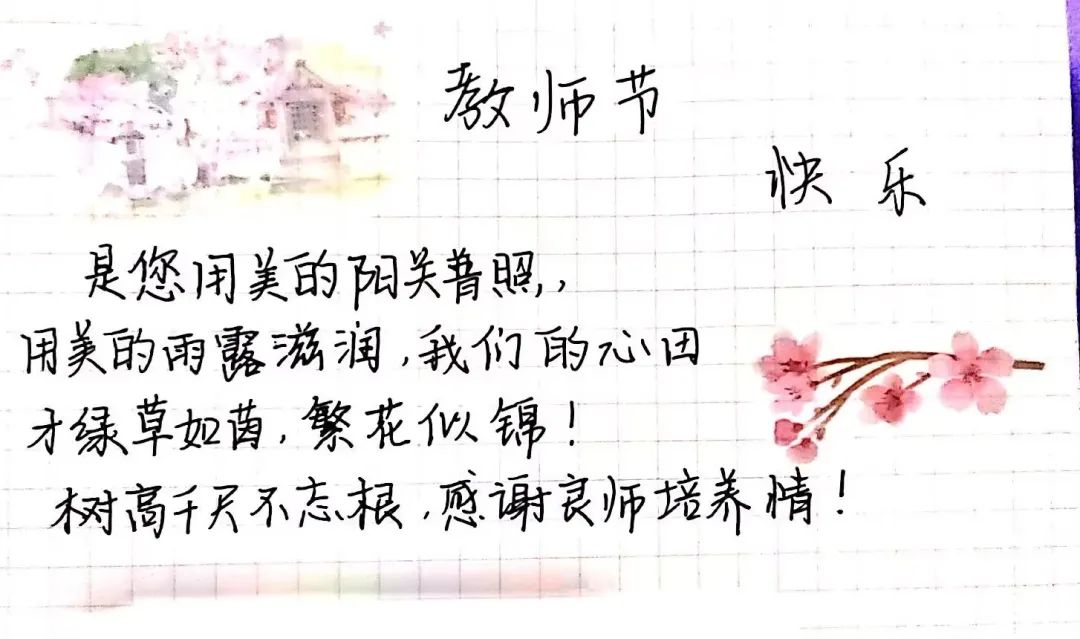 教师节
快乐
是您用美的阳关普照,,
用美的雨露滋润,我们的心田
才绿草如茵,繁花似锦!
树高千尺不忘根,感谢良师培养情!